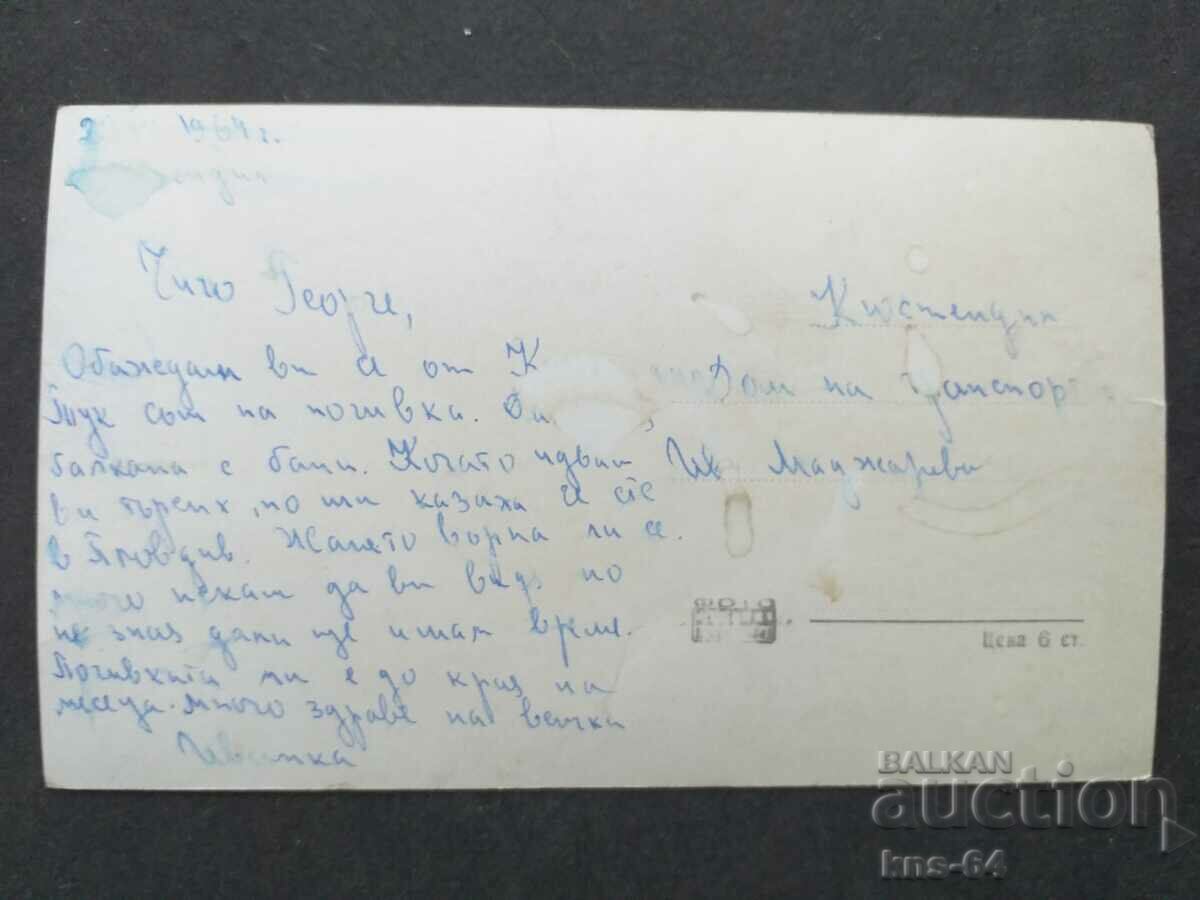 2 1964 г.
Чичо Георге,
Обаждам ви се от К
Тук съм на почивка.
балкана с бани. Когато идвам
ви търсих, но ми казаха че сте
в Пловдив. Жалкото върна ли се.
много искам да ви видя но
не зная дали ще имам време.
Почивката ми е до края на
месеца. много здраве на всички
Иванка
Кюстендил
Дом на транспорта
Маджарева
Цена 6 ст.
BALKAN
auction
kns-64